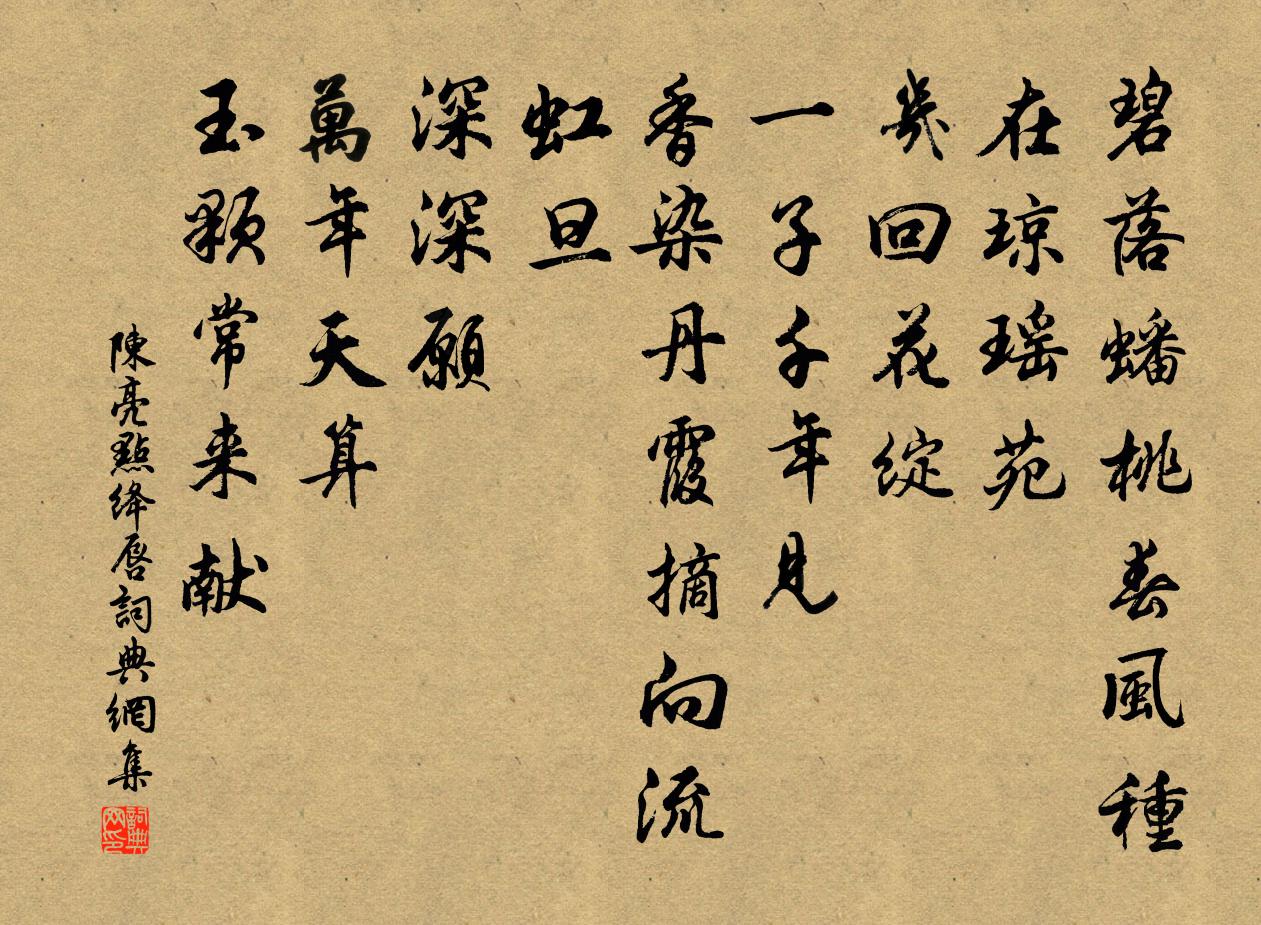 碧落蟠桃春風種
在琼瑶苑
幾回花綻
一子千年見
香染丹霞摘向流
虹旦
深深願
萬年天算
玉顆常来献
陳亮點绛唇詞典網集
詞典网印